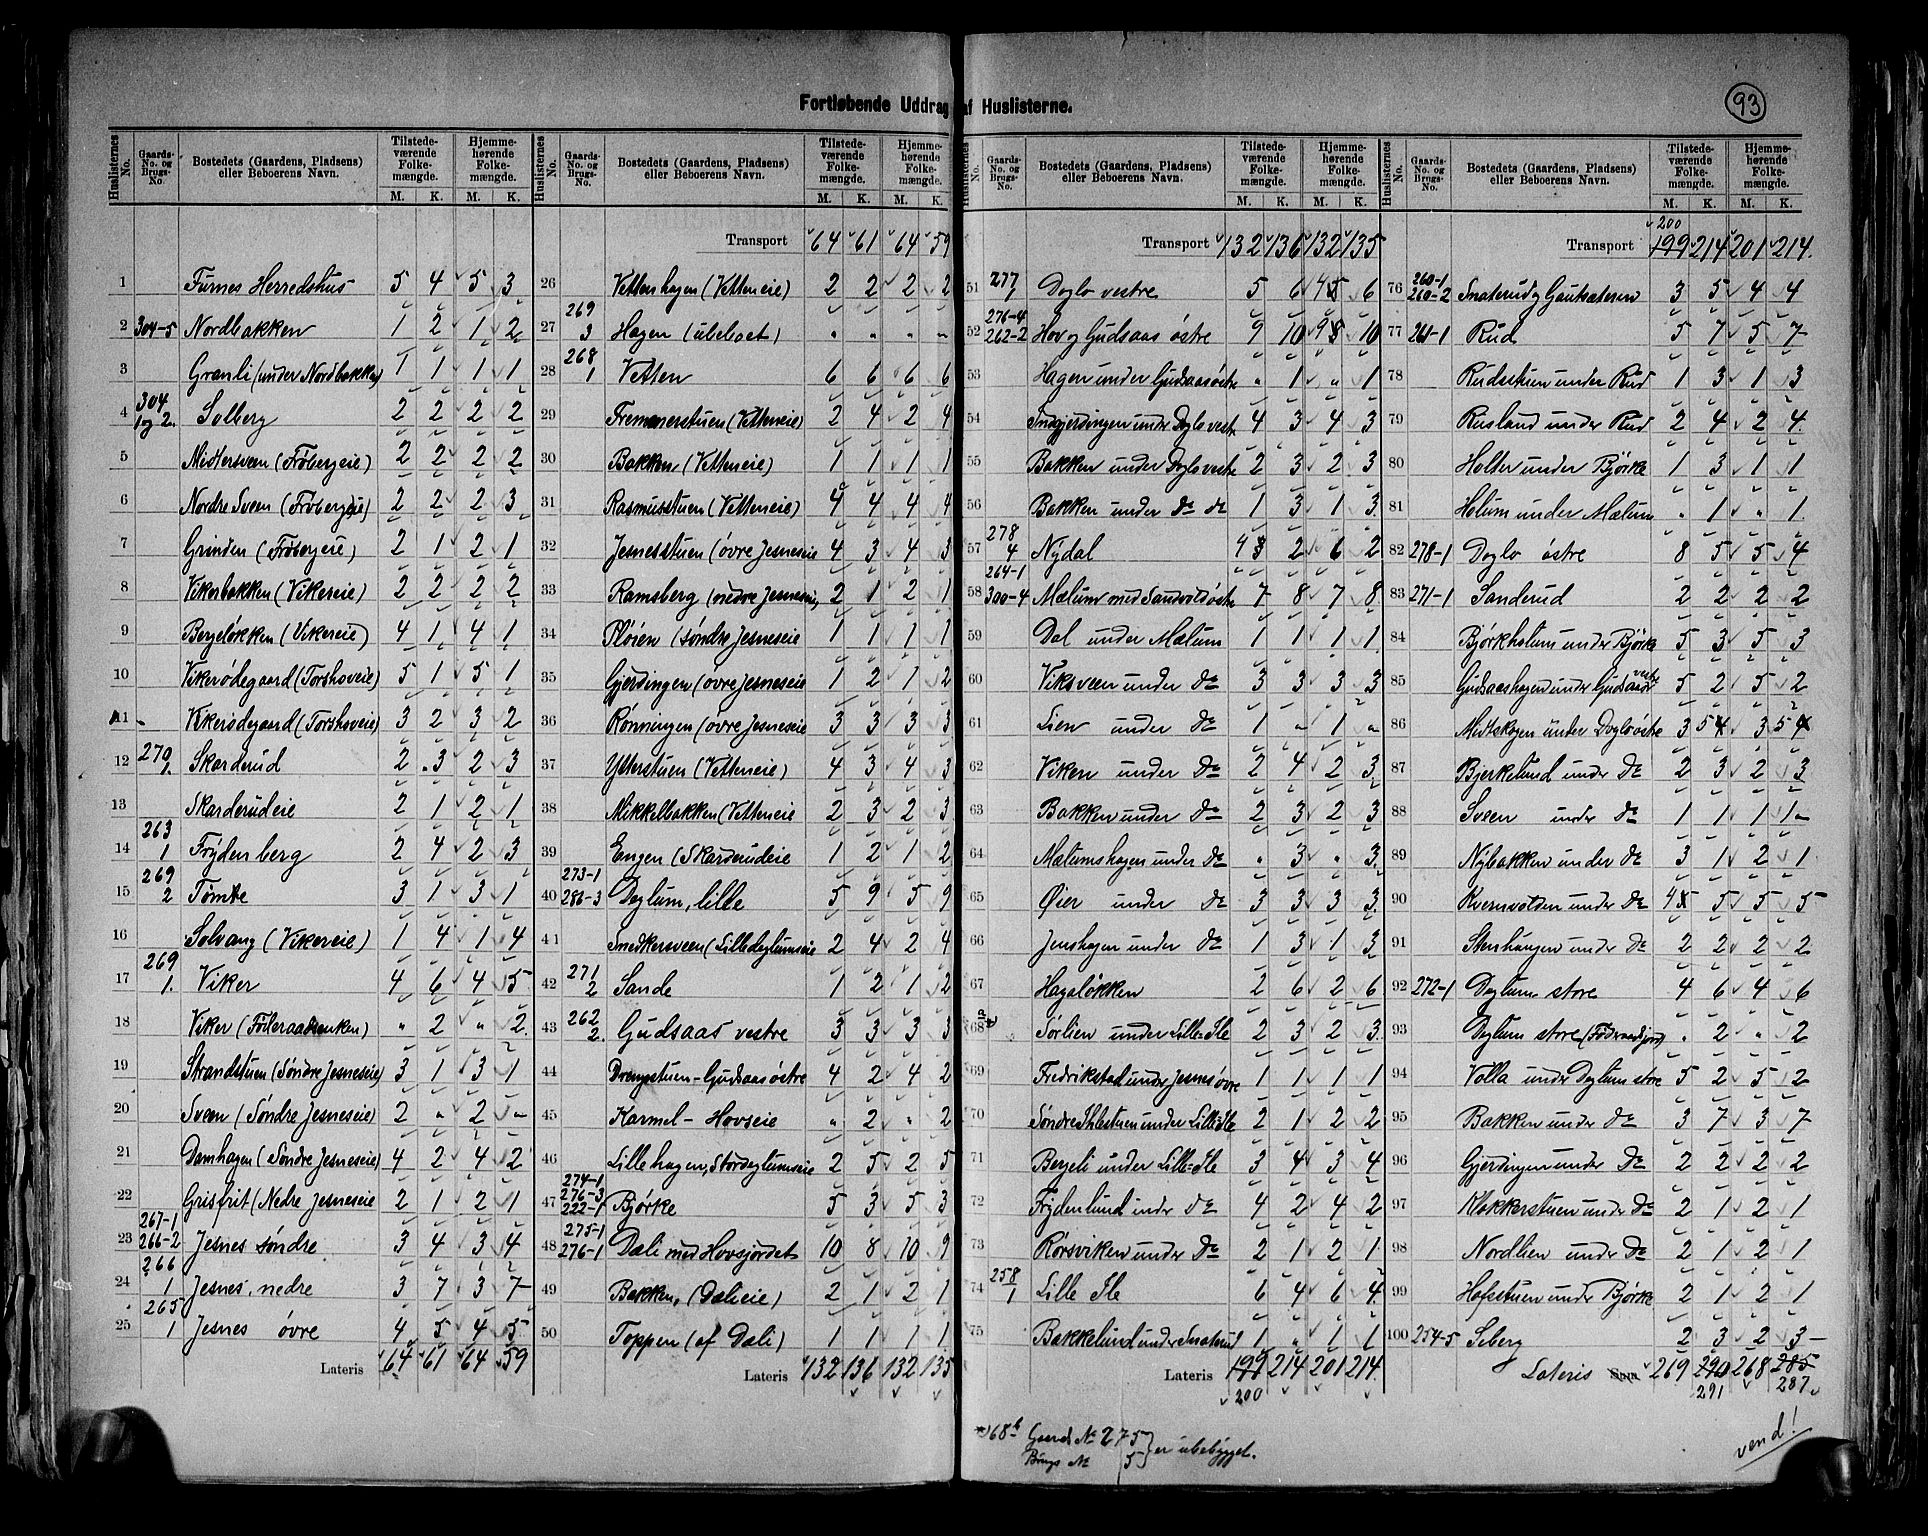 Fortløbende Uddrag af Huslisterne.
93
Huslisternes No. Gaards- No. og Brugs- No. Bostedets (Gaardens, Pladsens) eller Beboerens Navn. Tilstede- værende Folke- mængde. M. K. Hjemme- hørende Folke- mængde. M. K.
1 Furnes Herredshus 5 4 5 3
2 304-5 Nordbakken 1 2 1 2
3 Granli (under Nordbakken) 1 1 1 1
4 304 1 og 2. Solberg 2 2 2 2
5 Midtersveen (Frøbergeie) 2 2 2 2
6 Nordre Sveen (Frøbergeie) 2 2 2 3
7 Grinden (Frøbergeie) 2 1 2 1
8 Vikerbakken (Vikereie) 2 2 2 2
9 Bergeløkken (Vikereie) 4 1 4 1
10 Vikerødegaard (Torshoveie) 5 1 5 1
11 Vikerødegaard (Torshoveie) 3 2 3 2
12 270 1. Skarderud 2 3 2 3
13 Skarderudeie 2 1 2 1
14 263 1 Frydenberg 2 4 2 3
15 269 2 Tømte 3 1 3 1
16 Solvang (Vikereie) 1 4 1 4
17 269 1. Viker 4 6 4 5
18 Viker (Føderaadsenken) " 2 " 2
19 Strandstuen (Søndre Jesneseie) 3 1 3 1
20 Sveen (Søndre Jesneseie) 2 " 2 "
21 Damhagen (Søndre Jesneseie) 4 2 4 2
22 Grisfrit (Nedre Jesneseie 2 1 2 1
23 267-1 266-2 Jesnes søndre 3 4 3 4
24 266 1 Jesnes, nedre 3 7 3 7
25 265 1 Jesnes øvre 4 5 4 5
Lateris 64 61 64 59
Huslisternes No. Gaards- No. og Brugs- No. Bostedets (Gaardens, Pladsens) eller Beboerens Navn. Tilstede- værende Folke- mængde. M. K. Hjemme- hørende Folke- mængde. M. K.
Transport 64 61 64 59
26 Vettenhagen (Vetteneie) 2 2 2 2
27 269 3 Hagen (ubeboet) " " " "
28 268 1 Vetten 6 6 6 6
29 Fremmerstuen (Vetteneie) 2 4 2 4
30 Bakken (Vetteneie) 1 1 1 1
31 Rasmusstuen (Vetteneie) 4 4 4 4
32 Jesnesstuen (øvre Jesneseie 4 3 4 3
33 Ramsberg (nedre Jesneseie) 2 1 2 1
34 Pløien (søndre Jesneseie 1 1 1 1
35 Gjerdingen (øvre Jesneseie 1 2 1 2
36 Rønningen (øvre Jesneseie 3 3 3 3
37 Ytterstuen (Vetteneie) 4 3 4 3
38 Mikkelbakken (Vetteneie 2 3 2 3
39 Engen (Skarderudeie 1 2 1 2
40 273-1 286-3 Deglum, lille 5 9 5 9
41 Snedkersveen (Lilledeglumseie 2 4 2 4
42 271 2 Sande 1 2 1 2
43 262 2. Gudsaas vestre 3 3 3 3
44 Drengstuen-Gudsaas østre 4 2 4 2
45 Karmel-Hovseie " 2 " 2
46 Lillehagen, Stordeglumseie 2 5 2 5
47 274-1 276-3 222-1 Bjørke 5 3 5 3
48 275-1 276-1 Dæli med Hovsjordet 10 8 10 9
49 Bakken, (Dælieie) 2 1 2 1
50 Toppen (af Dæli) 1 1 1 1
Lateris 132 136 132 135
Huslisternes No. Gaards- No. og Brugs- No. Bostedets (Gaardens, Pladsens) eller Beboerens Navn. Tilstede- værende Folke- mængde. M. K. Hjemme- hørende Folke- mængde. M. K.
Transport 132 136 132 135
51 277 1 Doglo vestre 5 6 5 6
52 276-4 262-2 Hov og Gudsaas østre 9 10 9 10
53 Hagen under Gudsaas østre " 1 " 1
54 Indgjerdingen under Doglo vestr 4 3 4 3
55 Bakken under Doglo vestre 2 3 2 3
56 Bakken under do do 1 3 1 3
57 278 4 Nydal 4 2 6 2
58 264-1 300-4 Mælum med Sandvold østre 7 8 7 8
59 Dal under Mælum 1 1 1 1
60 Viksveen under do 3 3 3 3
61 Lien under do 1 " 1 "
62 Viken under do 2 4 2 3
63 Bakken under do 2 3 2 3
64 Mælumshagen under do " 3 " 3
65 Øier under do 3 3 3 3
66 Jenshagen under do 1 3 1 3
67 Hagaløkken 2 6 2 6
68 a Sørlien under Lille-Ile 2 3 2 3
69 Fredrikstad under Jesnes øvre 1 1 1 1
70 Søndre Ihlestuen under Lille-Ile 2 1 2 2
71 Bergeli under Lille-Ile 3 4 3 4
72 Frydenlund under do 4 2 4 2
73 Rørsviken under do 2 1 2 1
74 258 1 Lille Ile 6 4 6 4
75 Bakkelund under Snaterud 1 " 1 1
Lateris 199 214 201 214.
200
Huslisternes No. Gaards- No. og Brugs- No. Bostedets (Gaardens, Pladsens) eller Beboerens Navn. Tilstede- værende Folke- mængde. M. K. Hjemme- hørende Folke- mængde. M. K.
200
Transport 199 214 201 214.
76 260-1 260-2 Snaterud og Gautsæteren 3 5 4 4
77 261-1 Rud 5 7 5 7
78 Rudsstuen under Rud 1 3 1 3
79 Rusland under Rud 2 4 2 4
80 Holter under Bjørke 1 3 1 1
81 Holum under Mælum " 1 " 1
82 278-1 Doglo østre 8 5 5 4
83 271-1 Sanderud 2 2 2 2
84 Bjørkholum under Bjørke 5 3 5 3
85 Gudsaashagen under Gudsaas vestre 5 2 5 2
86 Midtskogen under Doglo østre 3 5 3 5
87 Bjerkelund under do 2 3 2 3
88 Sveen under do 1 1 1 1
89 Nybakken under do 3 1 2 1
90 Kvernvolden under do 4 5 5 5
91 Stenhaugen under do 2 2 2 2
92 272-1 Deglum store 4 6 4 6
93 Deglum store " 2 " 2
94 Volla under Deglum store 5 2 5 2
95 Bakken under do 3 7 3 7
96 Gjerdingen under do 2 2 2 2
97 Klokkerstuen under do 2 1 2 1
98 Nordlien under do 2 1 2 1
99 Hofsstuen under Bjørke 2 1 2 1
100 254-5 Seberg 2 3 2 3
Lateris Sum 269 290 268 285
291 287
68 b Gaards No 275
Brugs No 5 } er ubebygget.
vend!